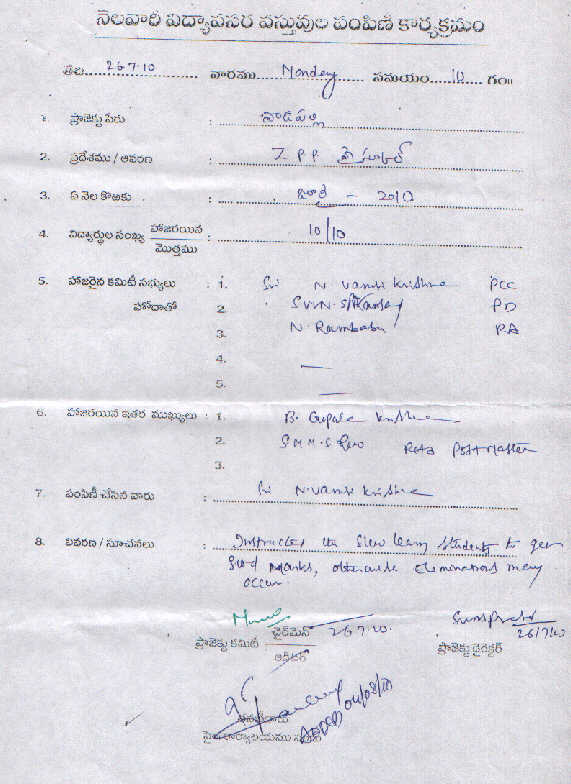 నెలవారీ విద్యావసర వస్తువుల పంపిణీ కార్యక్రమం
తేది 26.7.10 వారము Monday సమయం 10 గం॥
1. ప్రాజెక్టు పేరు : నాడపల్లి
2. ప్రదేశము / ఆవరణ : Z.P.P. హైస్కూల్
3. ఏ నెల కొఱకు : జూలై - 2010
4. విద్యార్థుల సంఖ్య హాజరయిన / మొత్తము : 10/10
5. హాజరైన కమిటీ సభ్యులు : 1. Sri N. Vamsi Krishna PCC
హోదాతో 2. PD
3. N. Rambabu PA
4. —
5. —
6. హాజరయిన ఇతర ముఖ్యులు : 1. B. Gopala Krishna
2. S M M S Rao Retd Post Master
3.
7. పంపిణీ చేసిన వారు : Sri N. Vamsi Krishna
8. వివరణ / సూచనలు : Instructed the slow learn students to get
good marks, otherwise eliminations may
occur.
ప్రాజెక్టు కమిటీ ఛైర్మెన్ 26.7.10.
ఆడిటర్
26/7/10
ప్రాజెక్టు డైరెక్టర్
04/08/10